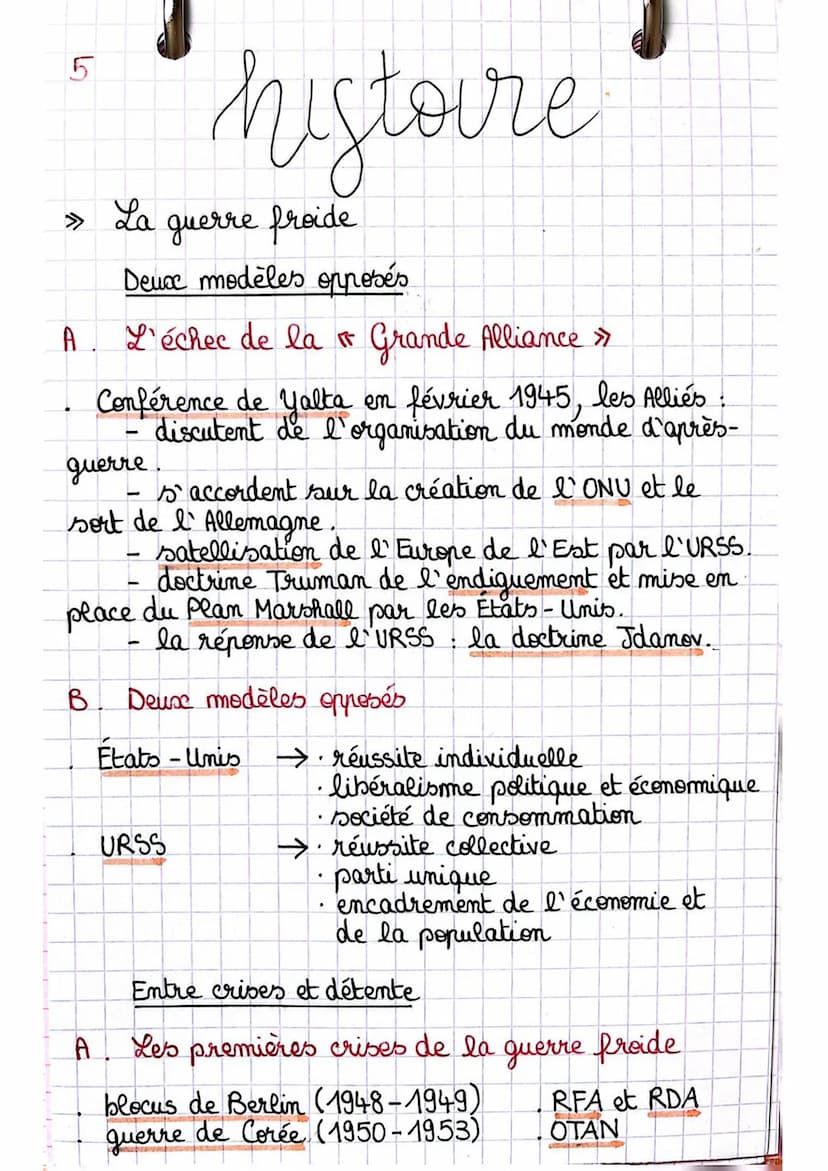 5
histoire
» La guerre froide
Deux modèles opposés
A. L'échec de la « Grande Alliance »
. Conférence de Yalta en février 1945, les Alliés :
- discutent de l'organisation du monde d'après-
guerre.
- s'accordent sur la création de l'ONU et le
sort de l'Allemagne.
- satellisation de l'Europe de l'Est par l'URSS.
- doctrine Truman de l'endiguement et mise en
place du Plan Marshall par les États-Unis.
- la réponse de l'URSS : la doctrine Jdanov.
B. Deux modèles opposés
. États-Unis → · réussite individuelle
· libéralisme politique et économique
· société de consommation
. URSS → · réussite collective
· parti unique
· encadrement de l'économie et
de la population
Entre crises et détente
A. Les premières crises de la guerre froide
. blocus de Berlin (1948-1949) . RFA et RDA
. guerre de Corée (1950-1953) . OTAN